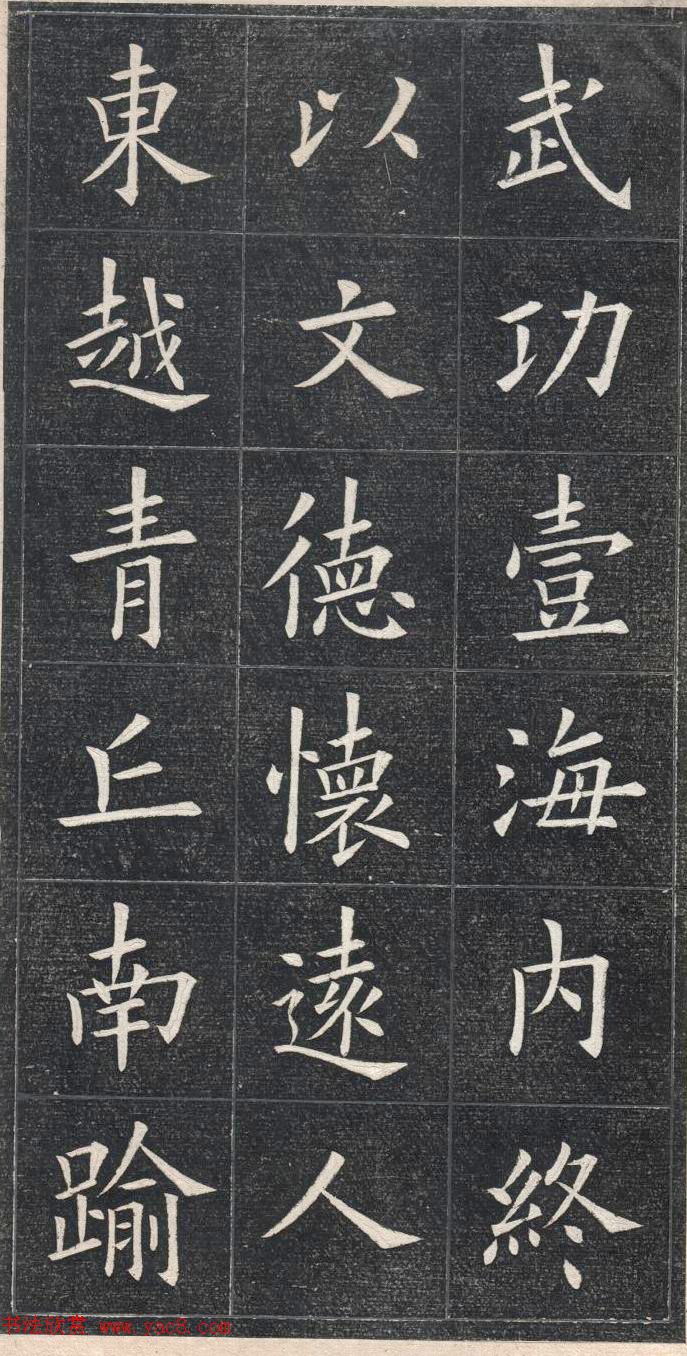 武功壹海内終
以文德懷遠人
東越青丘南踰
书法欣赏 www.yac8.com